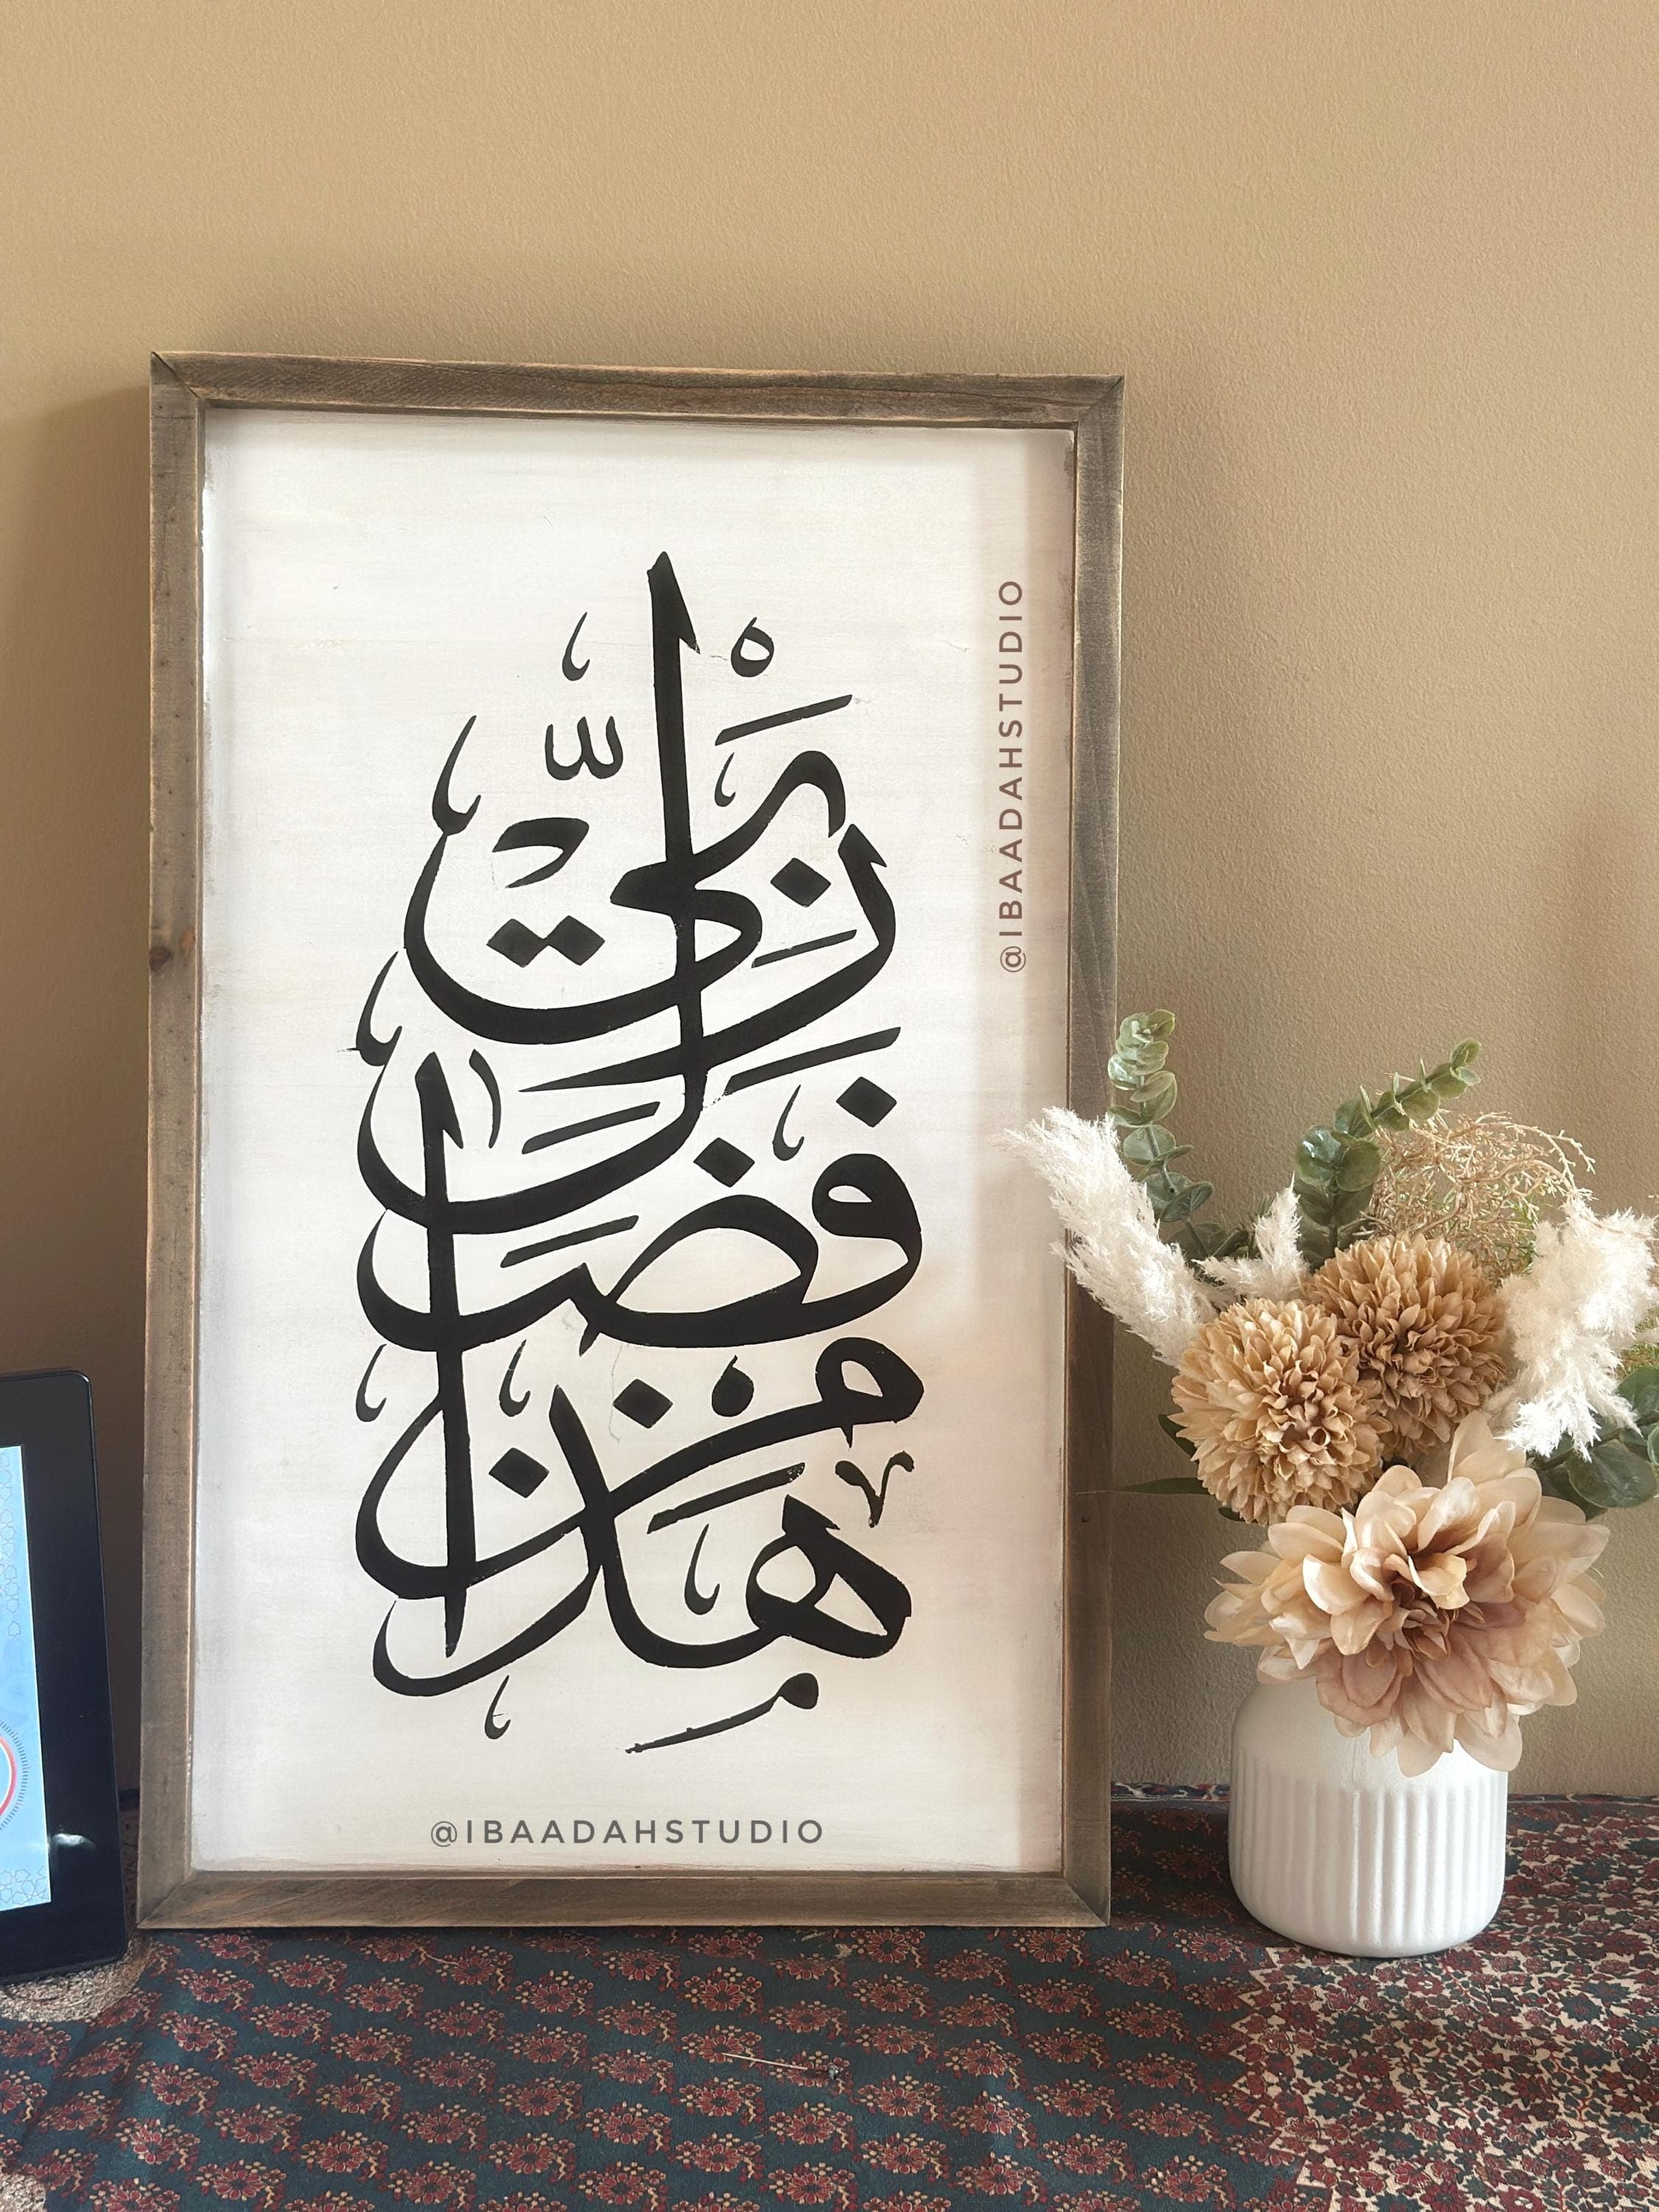 هَٰذَا مِن فَضْلِ رَبِّي
@IBAADAHSTUDIO
@IBAADAHSTUDIO